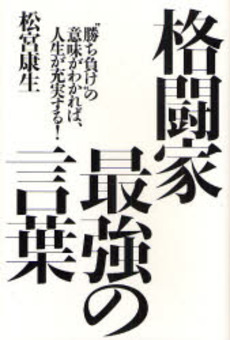 格闘家
最強の
言葉
"勝ち負け"の
意味がわかれば、
人生が充実する!
松宮康生